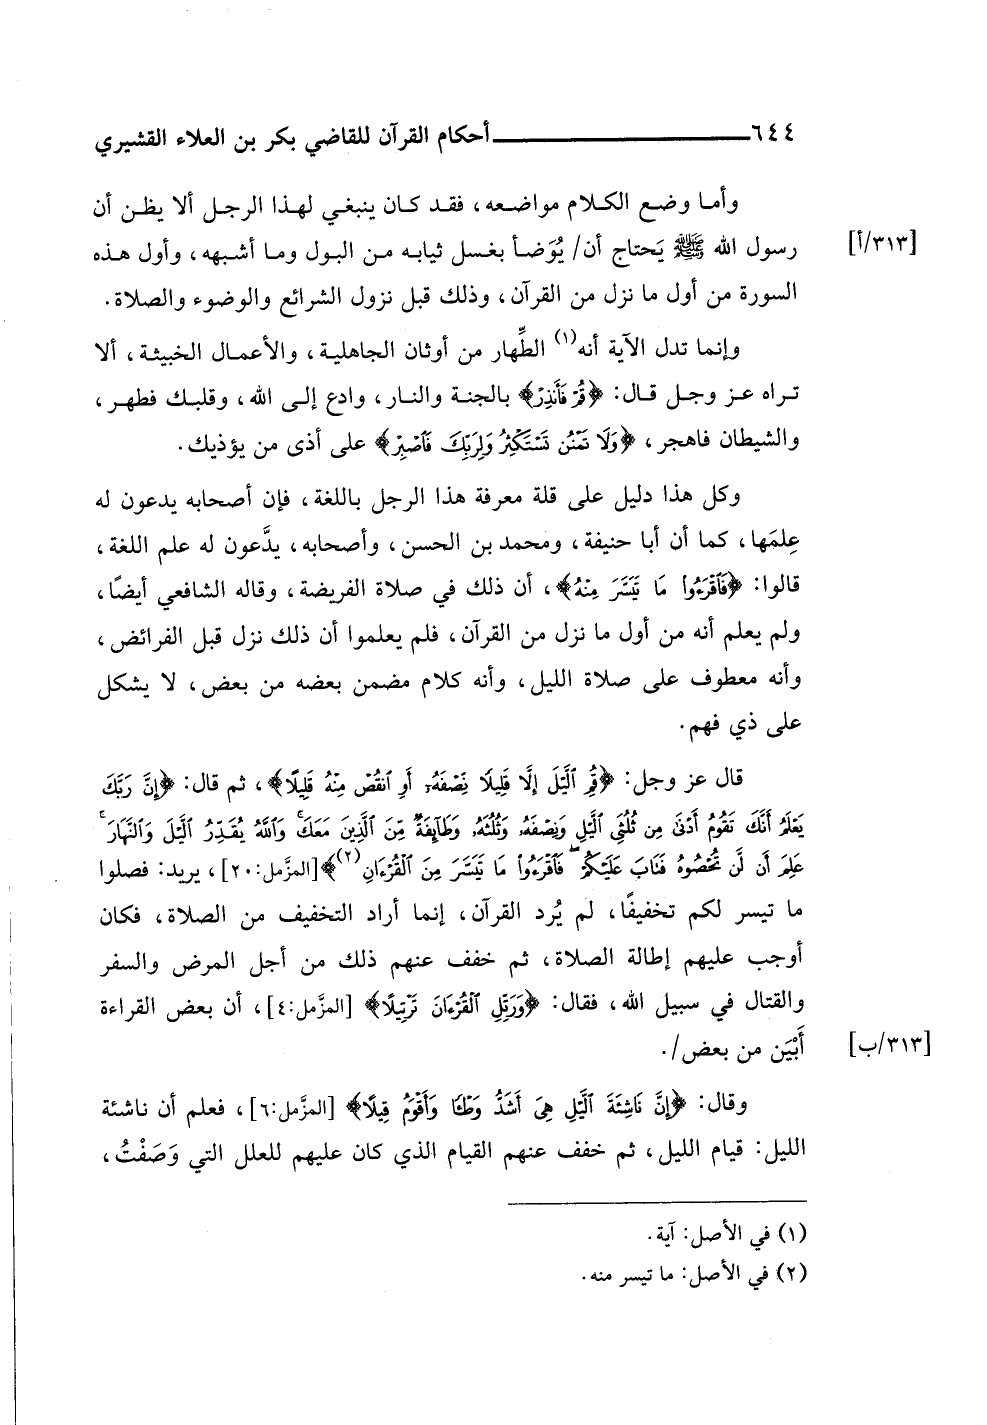 ٦٤٤ أحكام القرآن للقاضي بكر بن العلاء القشيري
وأما وضع الكلام مواضعه، فقد كان ينبغي لهذا الرجل ألا يظن أن
رسول الله ﷺ يَحتاج أن/ يُوَضأ بغسل ثيابه من البول وما أشبهه، وأول هذه [٣١٣/أ]
السورة من أول ما نزل من القرآن، وذلك قبل نزول الشرائع والوضوء والصلاة.
وإنما تدل الآية أنه(١) الطِّهار من أوثان الجاهلية، والأعمال الخبيثة، ألا
تراه عز وجل قال: ﴿قُرْ فَأَنذِرْ﴾ بالجنة والنار، وادع إلى الله، وقلبك فطهر،
والشيطان فاهجر، ﴿وَلَا تَمْنُن تَسْتَكْثِرُ وَلِرَبِّكَ فَٱصْبِرْ﴾ على أذى من يؤذيك.
وكل هذا دليل على قلة معرفة هذا الرجل باللغة، فإن أصحابه يدعون له
عِلمَها، كما أن أبا حنيفة، ومحمد بن الحسن، وأصحابه، يدَّعون له علم اللغة،
قالوا: ﴿فَٱقْرَءُوا۟ مَا تَيَسَّرَ مِنْهُ﴾، أن ذلك في صلاة الفريضة، وقاله الشافعي أيضًا،
ولم يعلم أنه من أول ما نزل من القرآن، فلم يعلموا أن ذلك نزل قبل الفرائض،
وأنه معطوف على صلاة الليل، وأنه كلام مضمن بعضه من بعض، لا يشكل
على ذي فهم.
قال عز وجل: ﴿قُمِ ٱلَّيْلَ إِلَّا قَلِيلًا نِصْفَهُۥ أَوِ ٱنقُصْ مِنْهُ قَلِيلًا﴾، ثم قال: ﴿إِنَّ رَبَّكَ
يَعْلَمُ أَنَّكَ تَقُومُ أَدْنَى مِن ثُلُثَيِ ٱلَّيْلِ وَنِصْفَهُۥ وَثُلُثَهُۥ وَطَآئِفَةٌ مِّنَ ٱلَّذِينَ مَعَكَ ۚ وَٱللَّهُ يُقَدِّرُ ٱلَّيْلَ وَٱلنَّهَارَ ۚ
عَلِمَ أَن لَّن تُحْصُوهُ فَتَابَ عَلَيْكُمْ ۖ فَٱقْرَءُوا۟ مَا تَيَسَّرَ مِنَ ٱلْقُرْءَانِ(٢)﴾[المزَّمل:٢٠]، يريد: فصلوا
ما تيسر لكم تخفيفًا، لم يُرد القرآن، إنما أراد التخفيف من الصلاة، فكان
أوجب عليهم إطالة الصلاة، ثم خفف عنهم ذلك من أجل المرض والسفر
والقتال في سبيل الله، فقال: ﴿وَرَتِّلِ ٱلْقُرْءَانَ تَرْتِيلًا﴾ [المزَّمل:٤]، أن بعض القراءة
أَبْيَن من بعض/. [٣١٣/ب]
وقال: ﴿إِنَّ نَاشِئَةَ ٱلَّيْلِ هِىَ أَشَدُّ وَطْـًٔا وَأَقْوَمُ قِيلًا﴾ [المزَّمل:٦]، فعلم أن ناشئة
الليل: قيام الليل، ثم خفف عنهم القيام الذي كان عليهم للعلل التي وَصَفْتُ،
(١) في الأصل: آية.
(٢) في الأصل: ما تيسر منه.